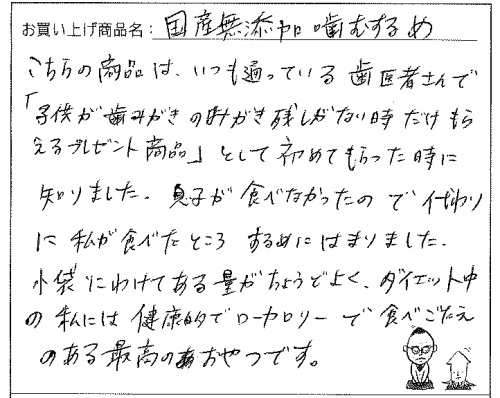 お買い上げ商品名： 国産無添加 噛むするめ
こちらの商品は、いつも通っている 歯医者さんで
「子供が歯みがきのみがき残しがない時だけもら
えるプレゼント商品」として初めてもらった時に
知りました。息子が食べなかったので代わり
に私が食べたところ するめにはまりました。
小袋にわけてある量がちょうどよく、ダイエット中
の私には健康的でローカロリーで食べごたえ
のある最高のおやつです。